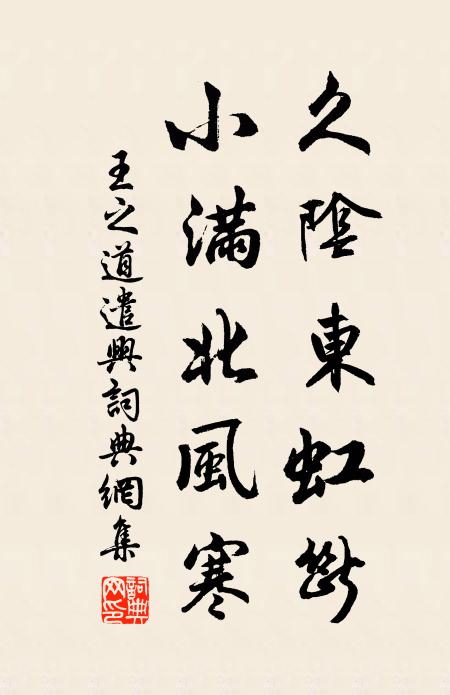 久陰東虹斷
小滿北風寒
王之道遣興詞典網集
詞典網印